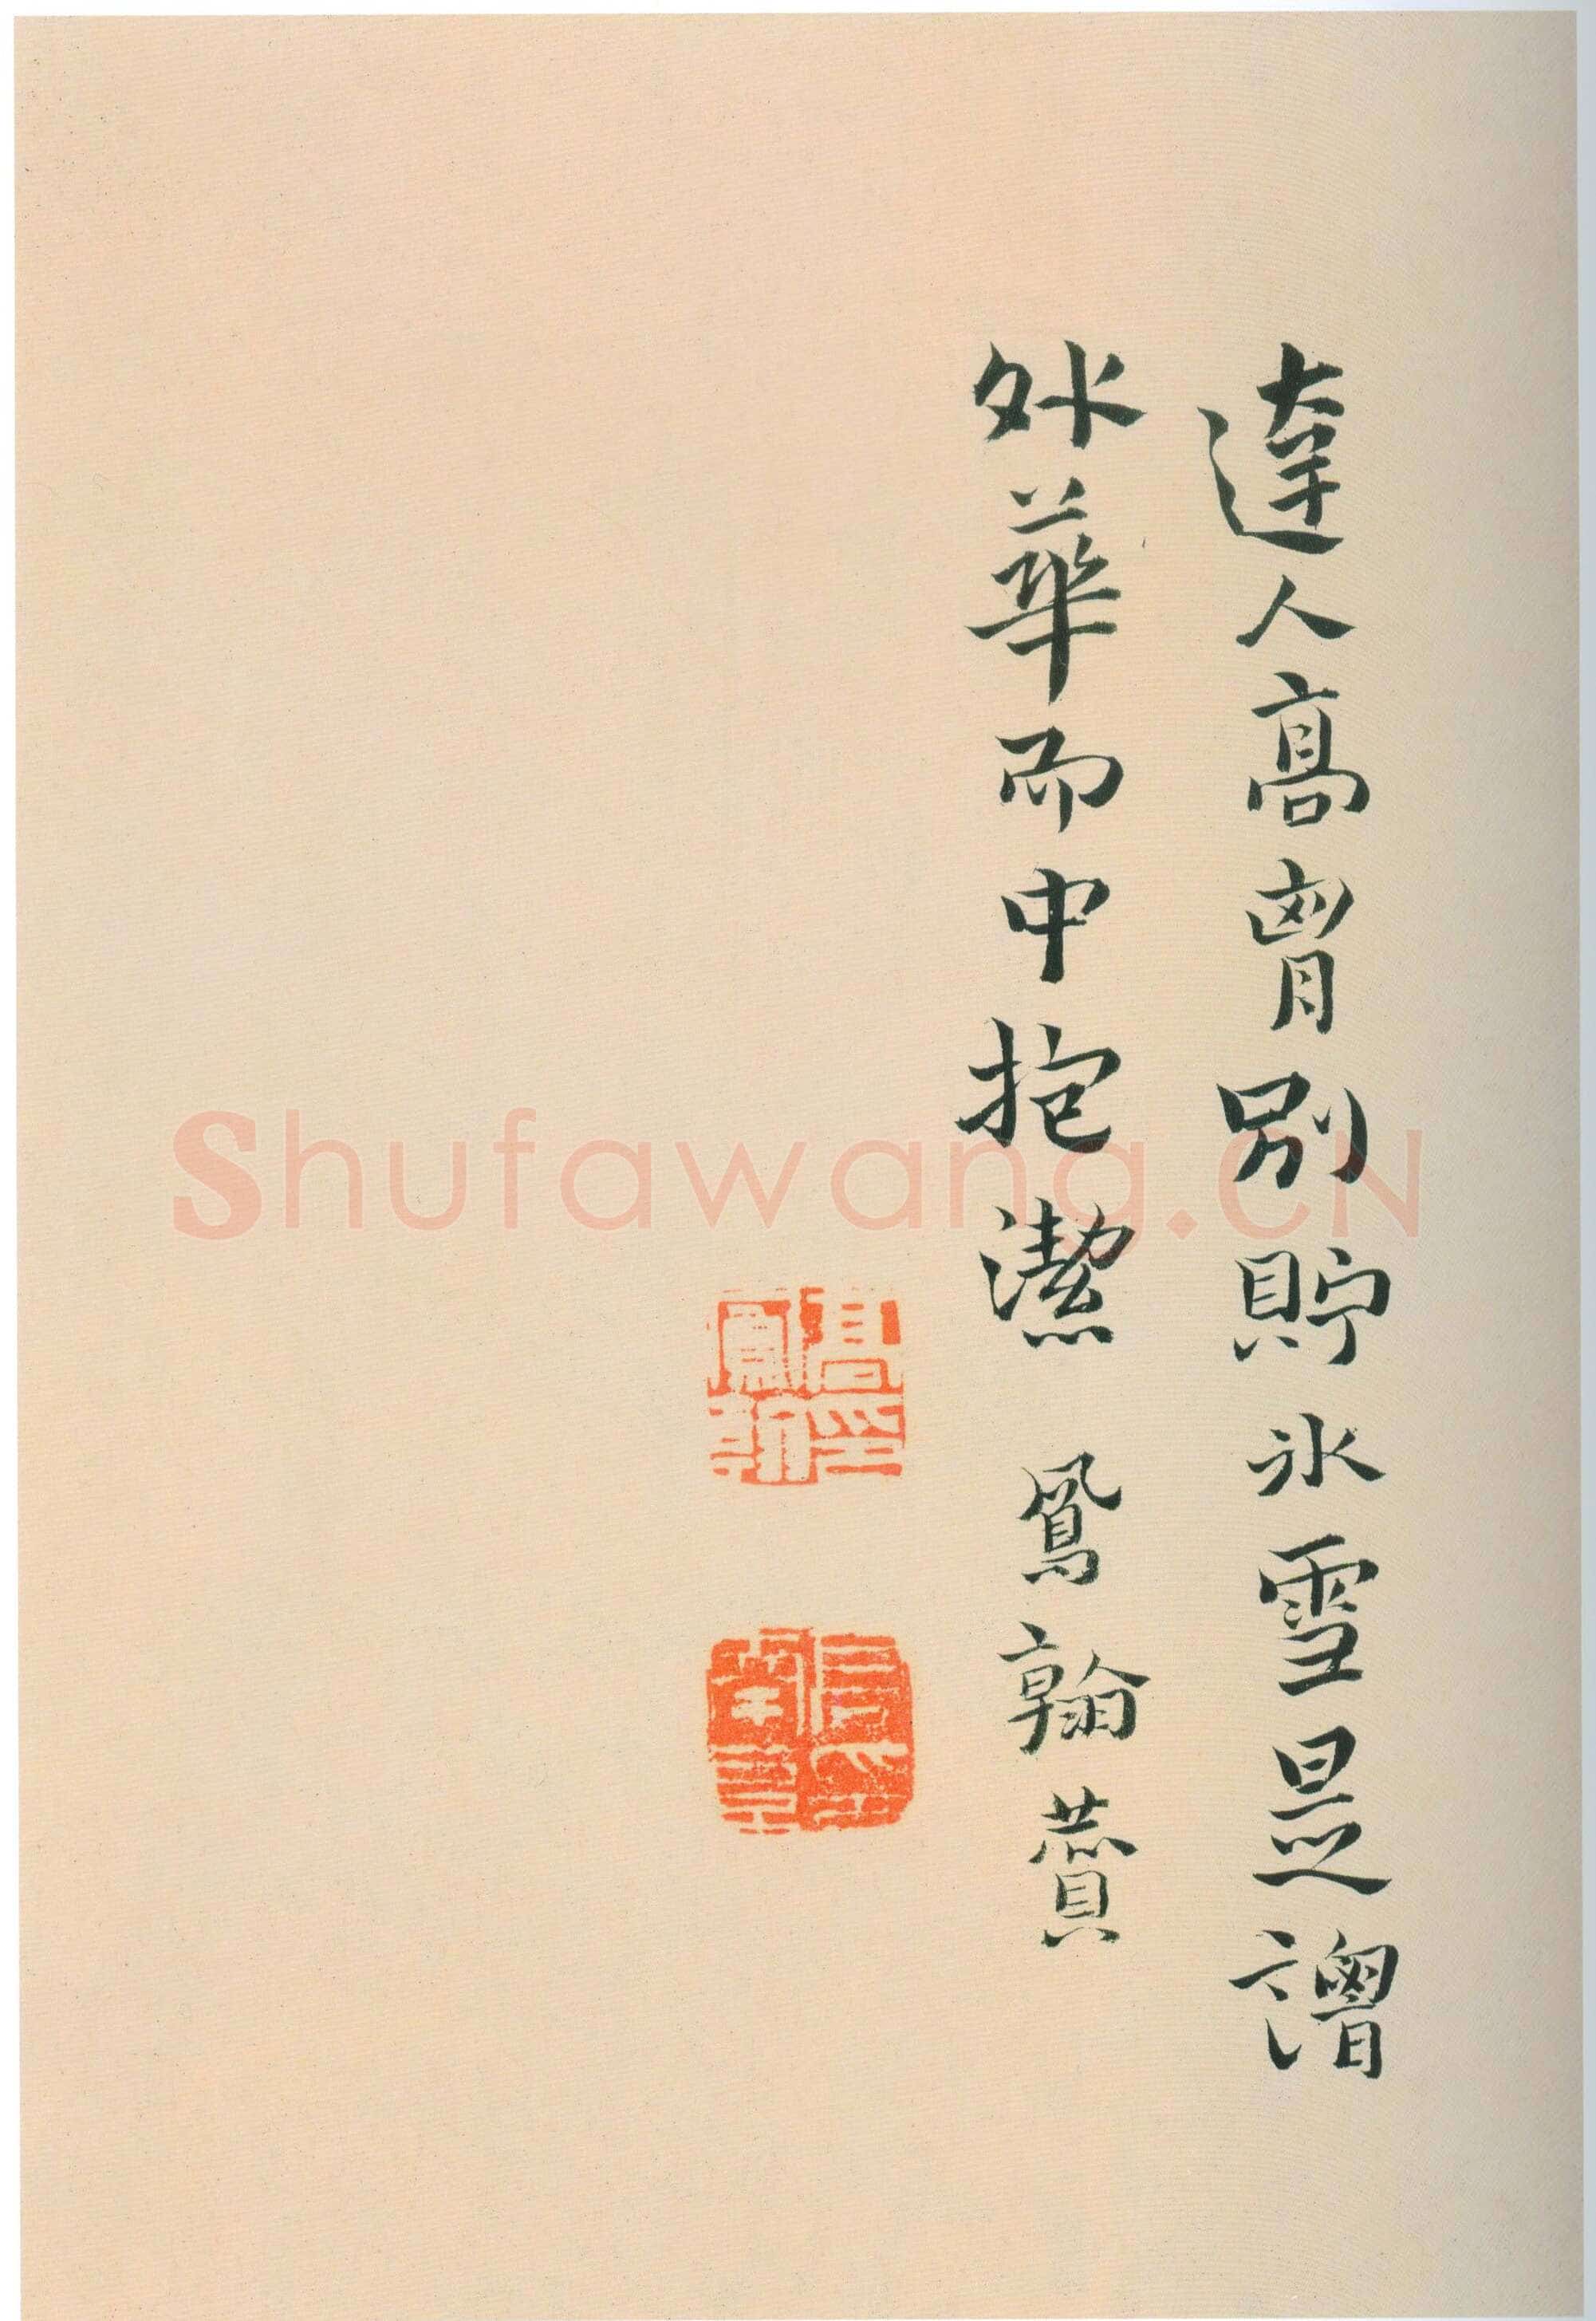 達人高胷別貯冰雪是謂
外華而中抱潔 鳳翰贊
高鳳翰印
Shufawang.CN